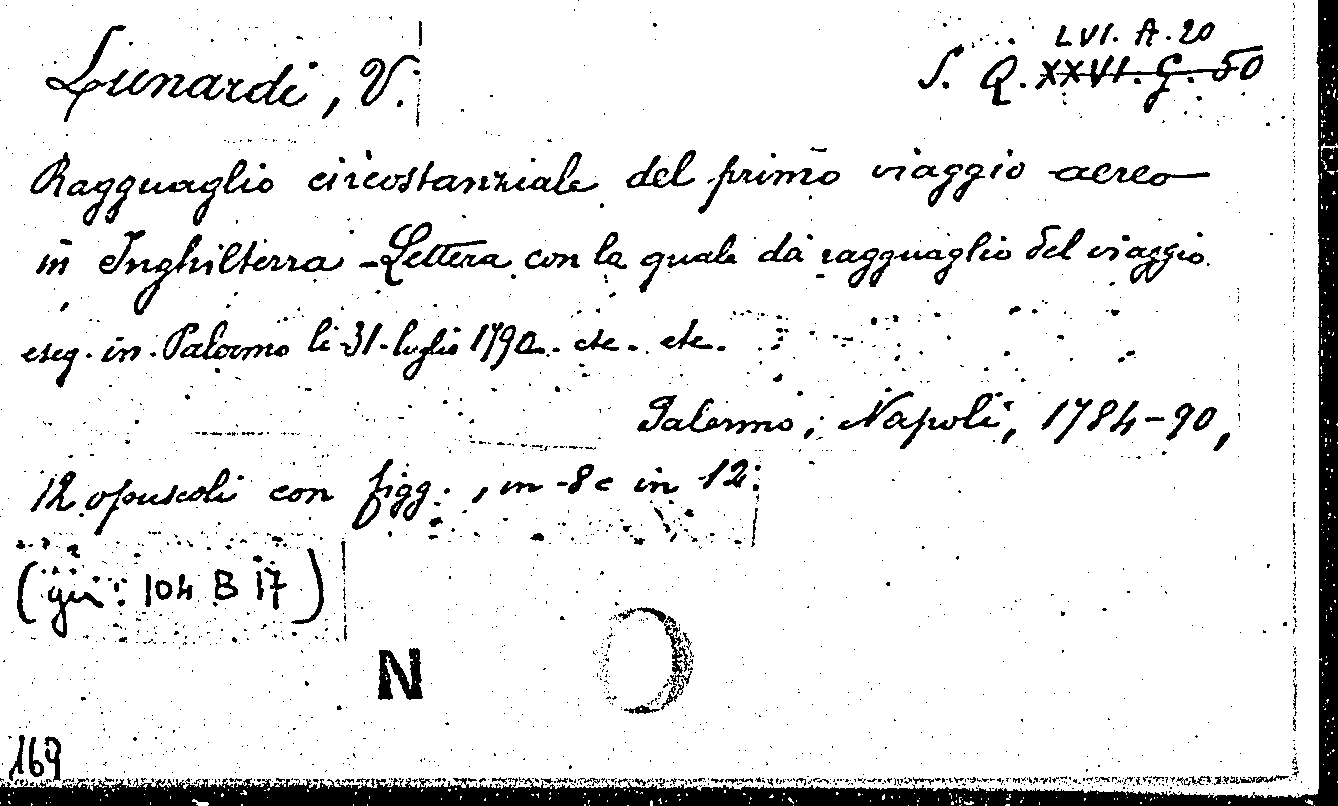 LVI. A. 20
Lunardi, V.
S. Q. XXVI. G. 50
Ragguaglio circostanziale del primo viaggio aereo
in Inghilterra - Lettera con la quale dà ragguaglio del viaggio
eseg. in Palermo li 31 luglio 1790. etc. etc.
Palermo, Napoli, 1784-90,
12 opuscoli con figg., in-8 e in 12.
(già: 104 B 17)
N
169